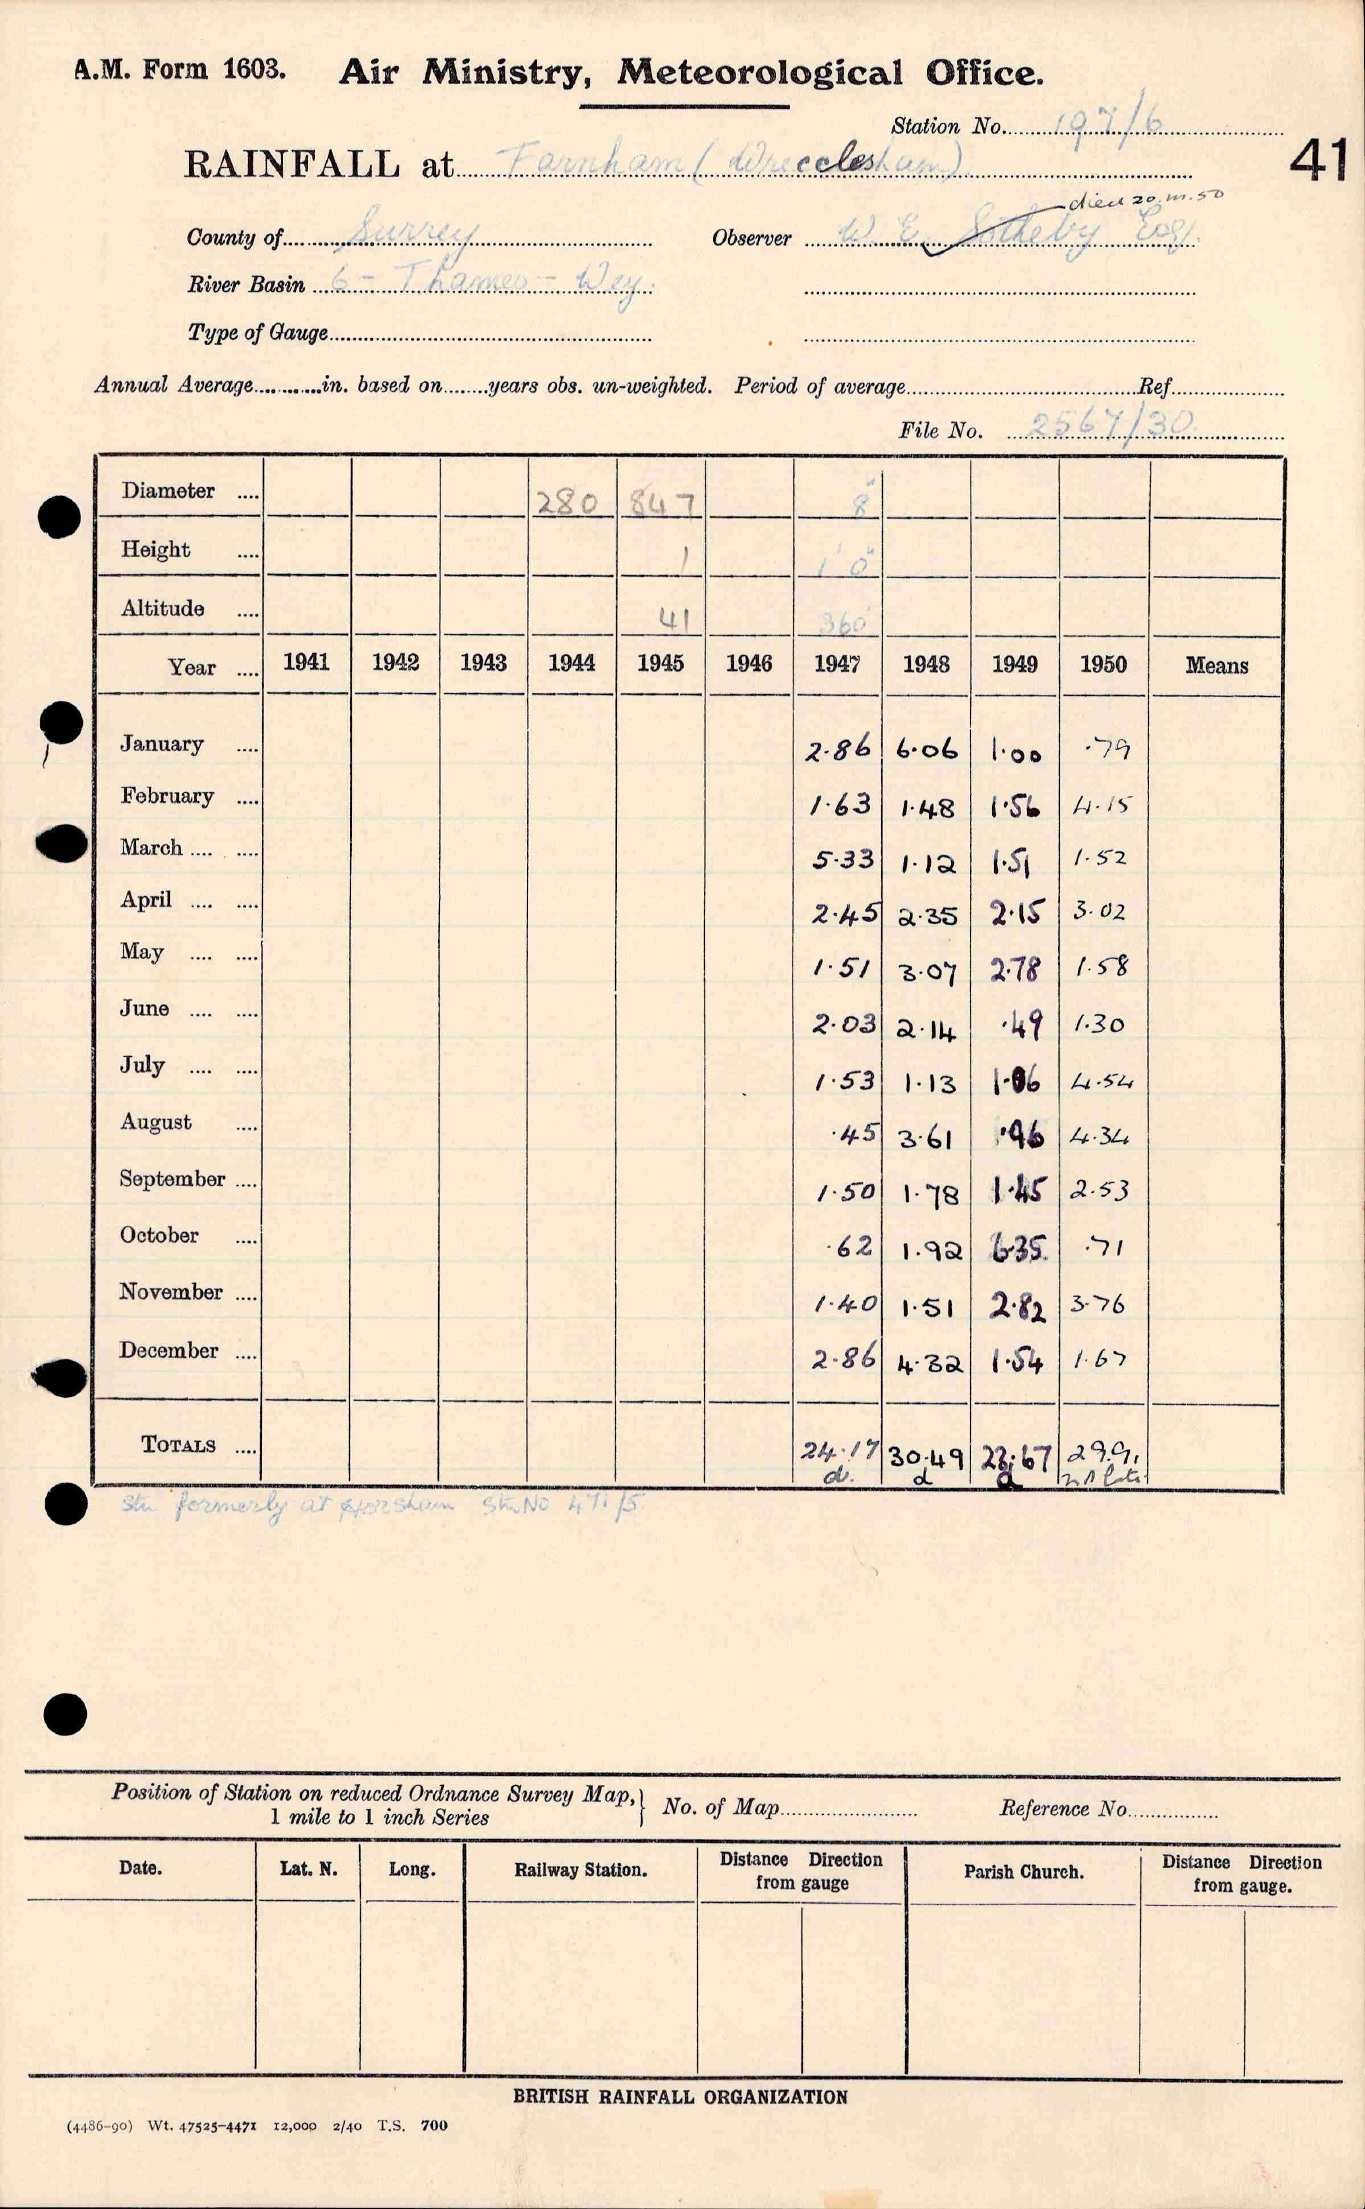 A.M. Form 1603. Air Ministry, Meteorological Office.
Station No. 197/6
41
RAINFALL at Farnham (Wrecclesham)
died 20.III.50
County of Surrey Observer W. E. Sotheby Esq.
River Basin 6 - Thames - Wey.
Type of Gauge
Annual Average in. based on years obs. un-weighted. Period of average Ref.
File No. 2567/30
Diameter 280 847 8"
Height 1 1' 0"
Altitude 41 360'
Year 1941 1942 1943 1944 1945 1946 1947 1948 1949 1950 Means
January 2.86 6.06 1.00 .79
February 1.63 1.48 1.56 4.15
March 5.33 1.12 1.51 1.52
April 2.45 2.35 2.15 3.02
May 1.51 3.07 2.78 1.58
June 2.03 2.14 .49 1.30
July 1.53 1.13 1.06 4.54
August .45 3.61 .96 4.34
September 1.50 1.78 1.45 2.53
October .62 1.92 6.35 .71
November 1.40 1.51 2.82 3.76
December 2.86 4.32 1.54 1.67
TOTALS 24.17 30.49 23.67 29.91
d. d d
Stn formerly at Horsham Stn. No 471/5
Position of Station on reduced Ordnance Survey Map, 1 mile to 1 inch Series } No. of Map Reference No.
Date. Lat. N. Long. Railway Station. Distance Direction from gauge Parish Church. Distance Direction from gauge.
BRITISH RAINFALL ORGANIZATION
(4486-90) Wt. 47525-4471 12,000 2/40 T.S. 700